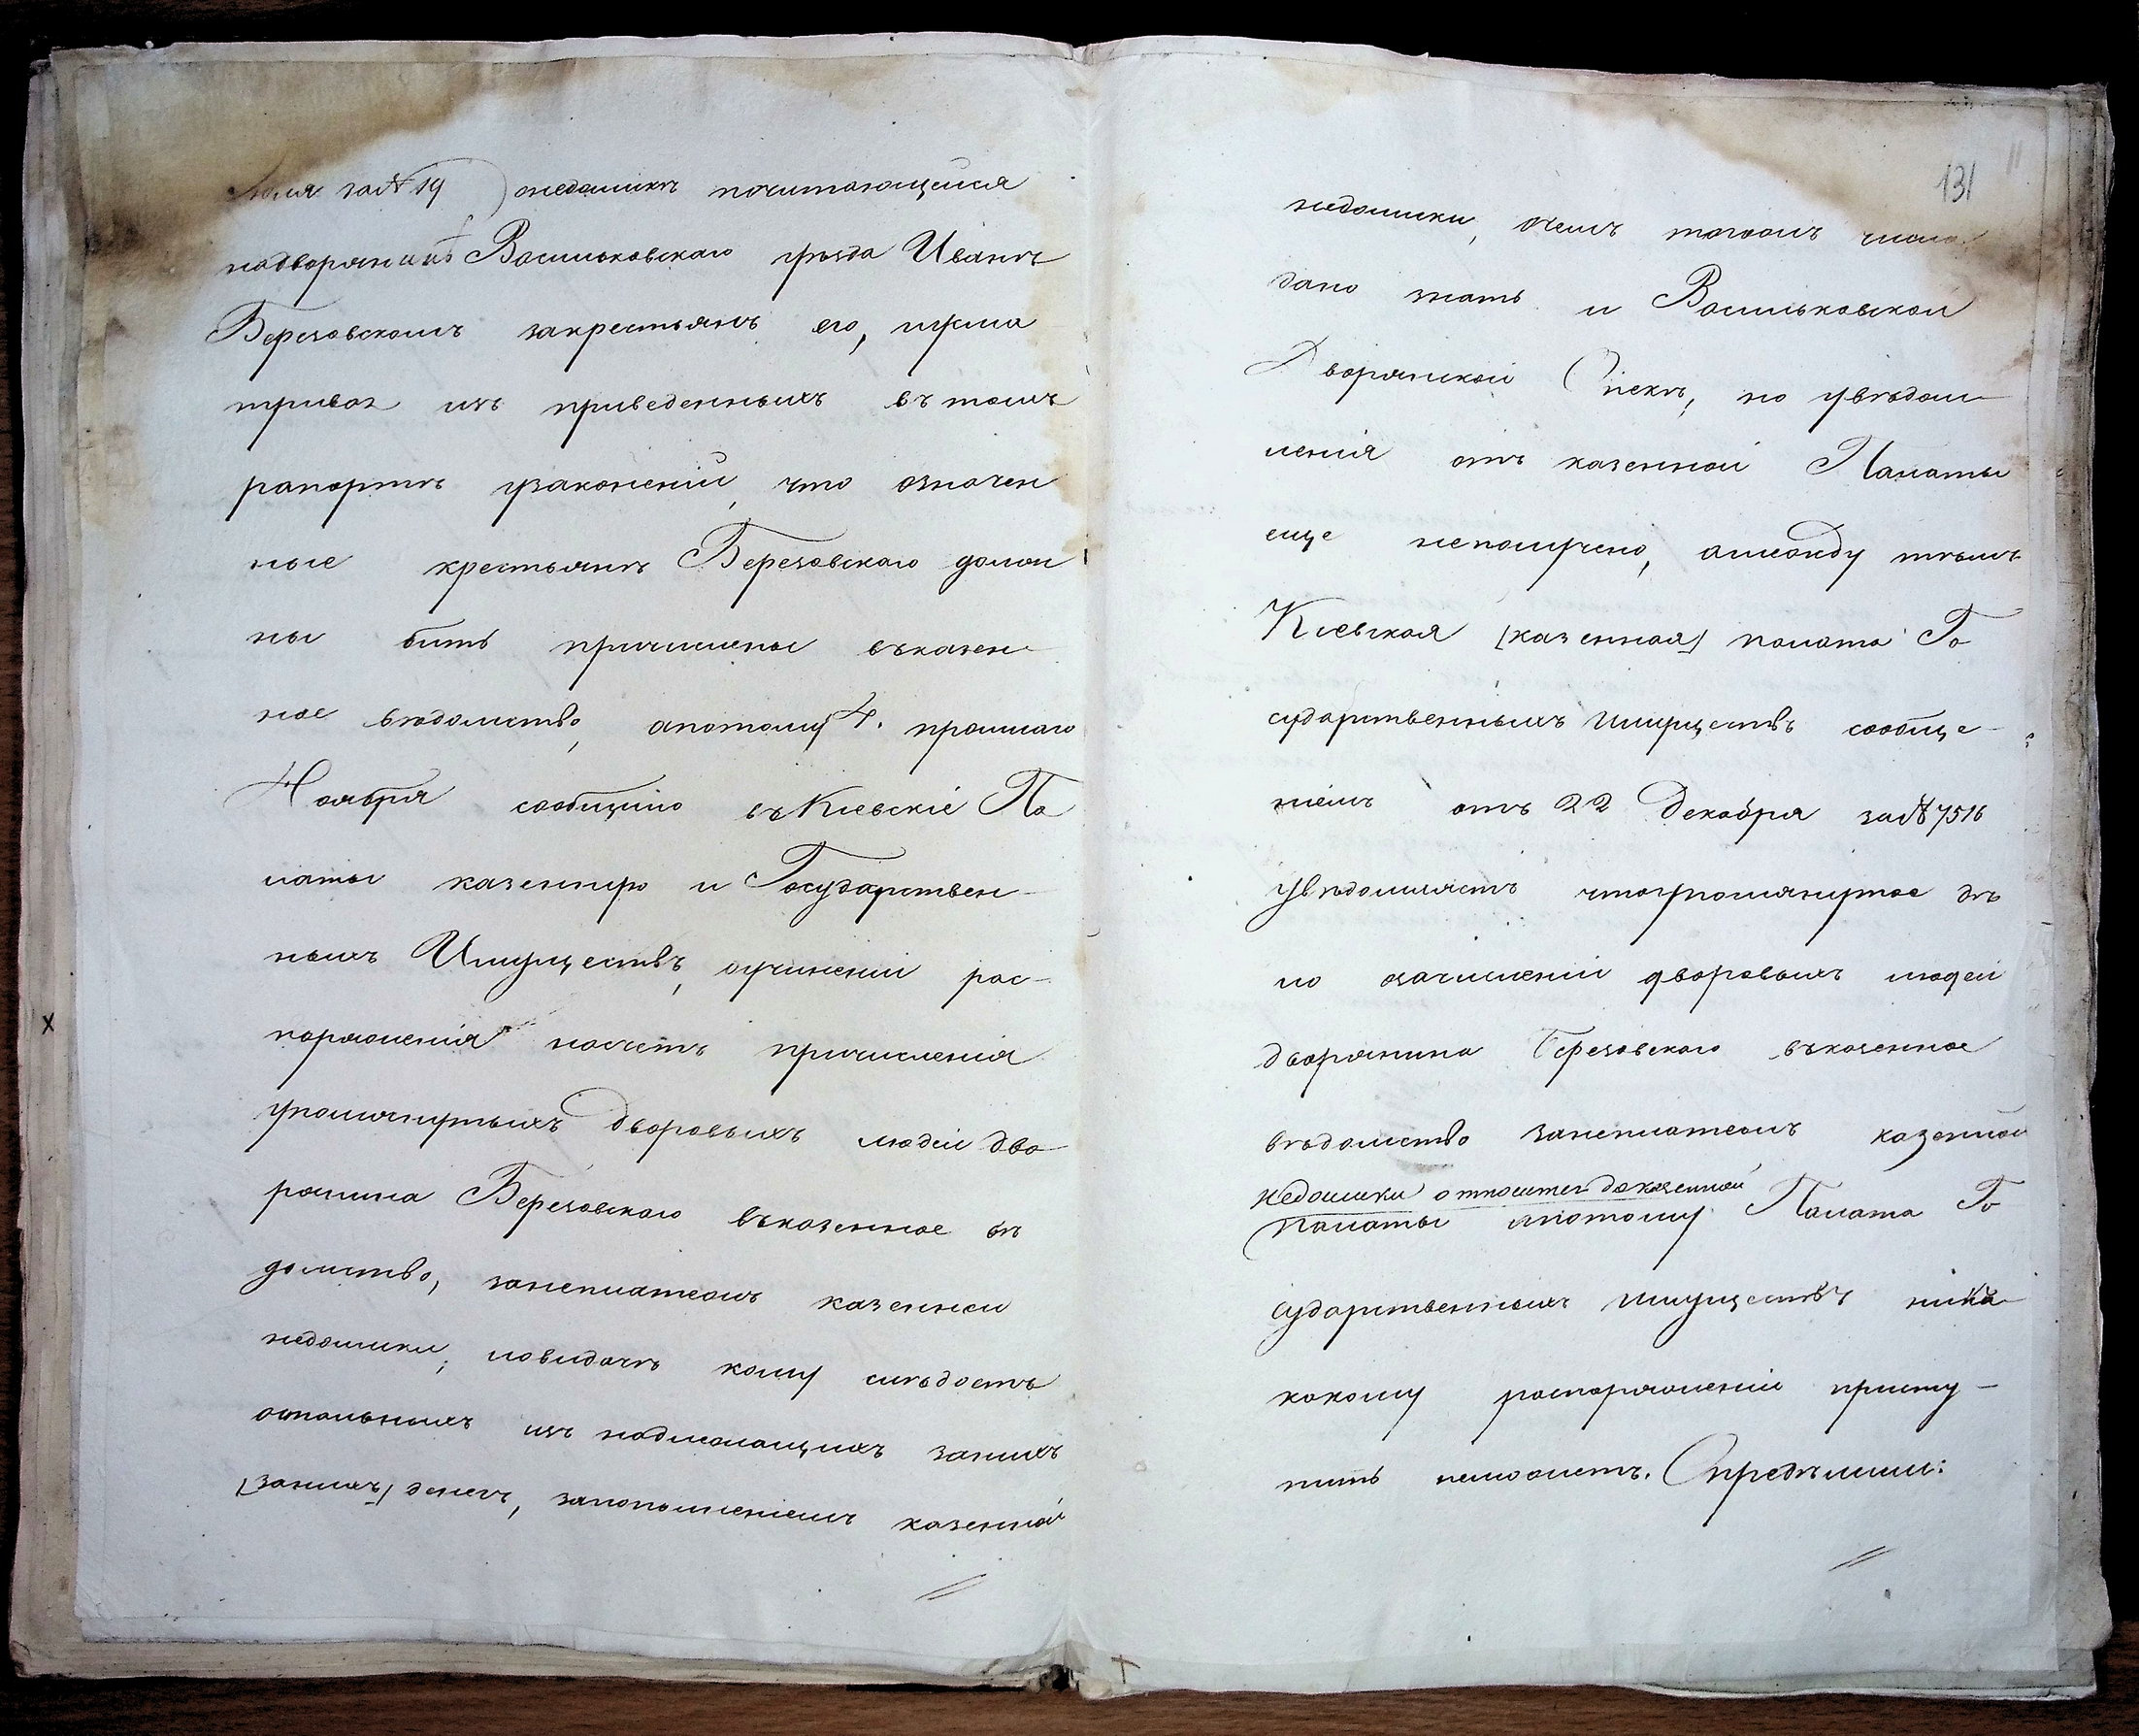 за № 19) онедоимке почитающейся
надворянине Васильковскаго уезда Иване
Березовскомъ закрестьянъ его, усма
тривая изъ приведенныхъ въ томъ
рапорте узаконений, что означен
ные крестьяне Березовскаго долж
ны быть причислены въказен
ное ведомство, апотому 4. прошлаго
Ноября сообщено въ Киевские Па
латы казенную и Государствен-
ныхъ Имуществъ, оучинении рас-
поряжения насчетъ причисления
упомянутыхъ дворовыхъ людей дво
рянина Березовскаго въказенное ве
домство, занеплатежъ казенной
недоимки, иовыдаче кому следоетъ
остальныхъ изъ надлежащихъ заних
(занихъ) денегъ, запополнениемъ казенной
131
недоимки, очемъ тогожъ числа
дано знать и Васильковской
Дворянской Опеке, но уведом
ления отъ казенной Палаты
еще неполучено, амежду темъ
Киевская (казенная) палата Го
сударственныхъ Имуществъ сообще-
ниемъ отъ 22 Декабря за № 7516
Уведомляетъ чтоупомянутое де
ло озачислении дворовыхъ людей
дворянина Березовскаго въказенное
ведомство занеплатежъ казенной
недоимки относится доказенной
палаты ипотому Палата Го
сударственныхъ имуществъ ника
кому распоряжению присту-
пить неможетъ. Определили: